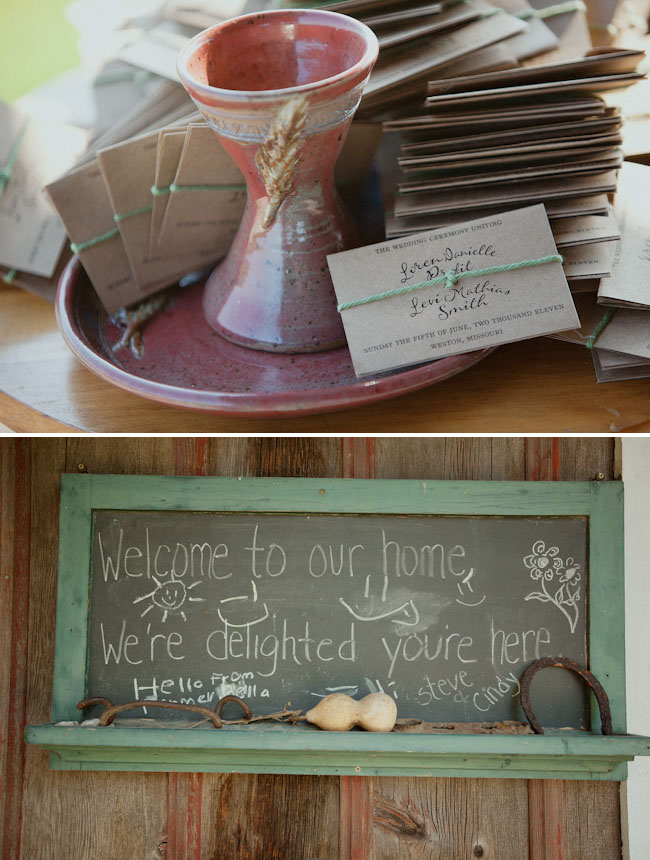 THE WEDDING CEREMONY UNITING
Loren Danielle
Levi Mathias
Smith
SUNDAY THE FIFTH OF JUNE, TWO THOUSAND ELEVEN
WESTON, MISSOURI
Welcome to our home
We're delighted you're here
Hello From
Steve
& Cindy